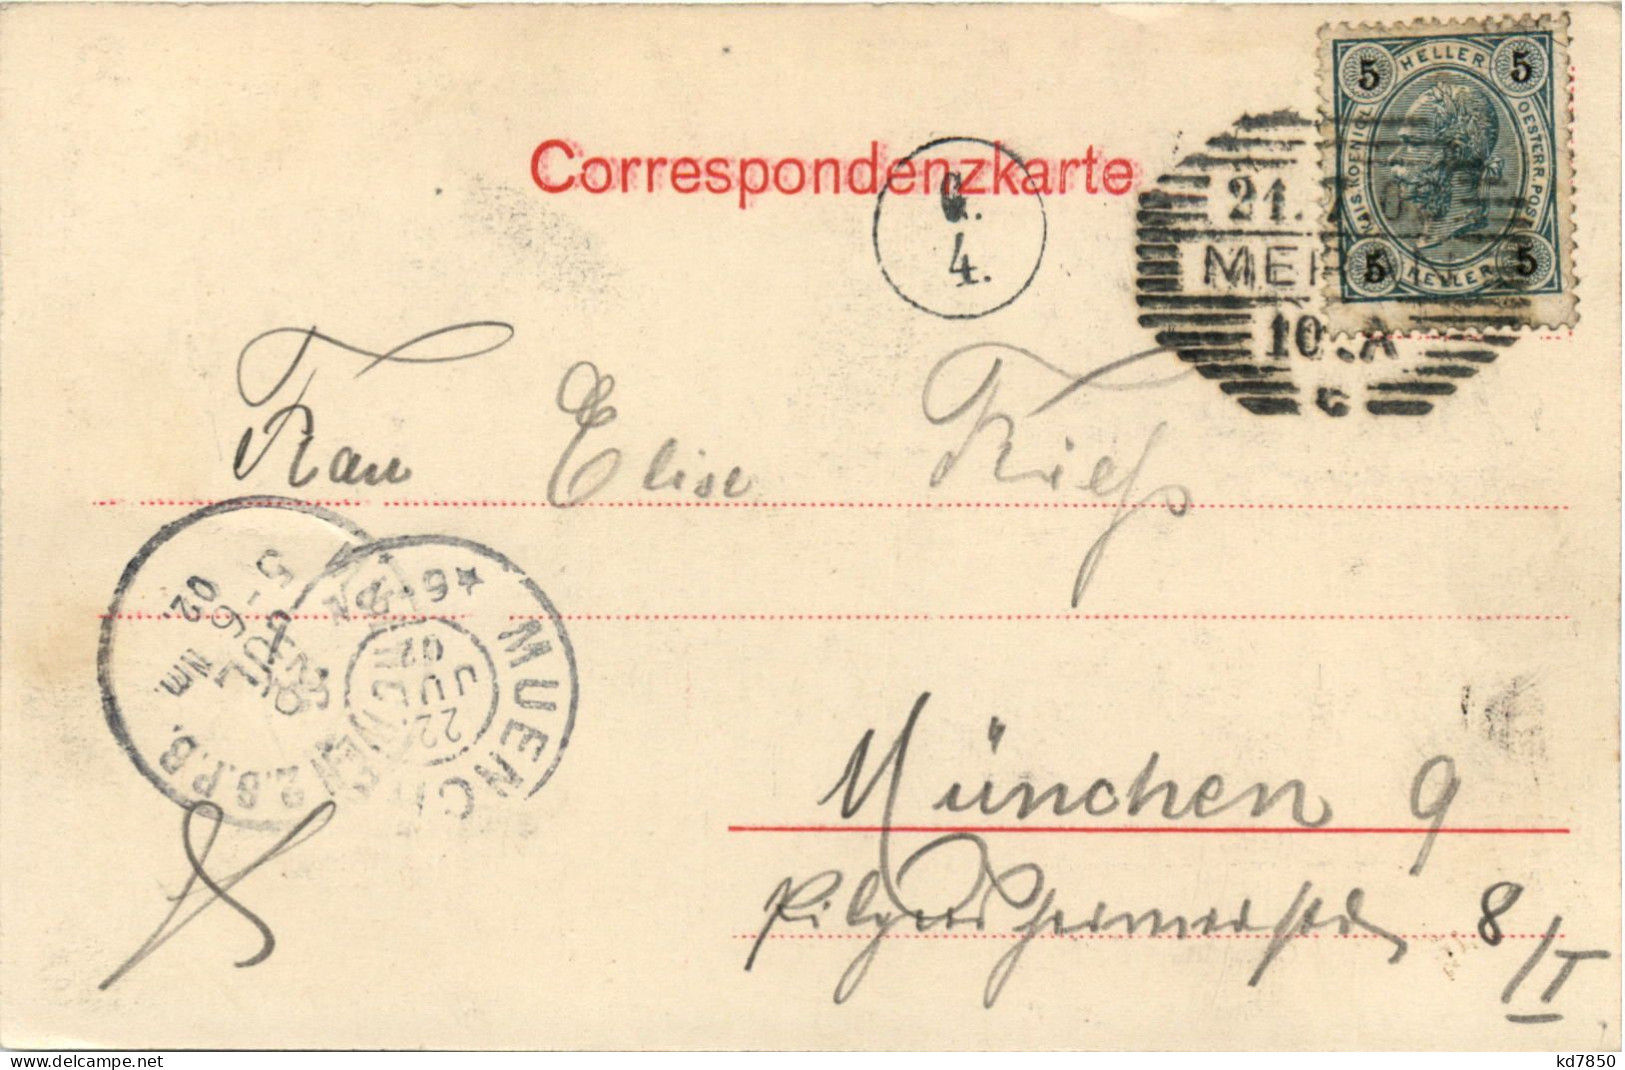 5 HELLER 5
KAIS KOENIGL OESTERR POST
5 HELLER 5
Correspondenzkarte
G.
4.
21. 7 0
MER
10 A
Frau Elise Rieß
5-6 Nm.
JUL
02
MUENCHEN 2.B.P.B.
MUENCHEN
22
JUL
02
München 9
Pilgersheimerstr. 8/I
www.delcampe.net
kd7850